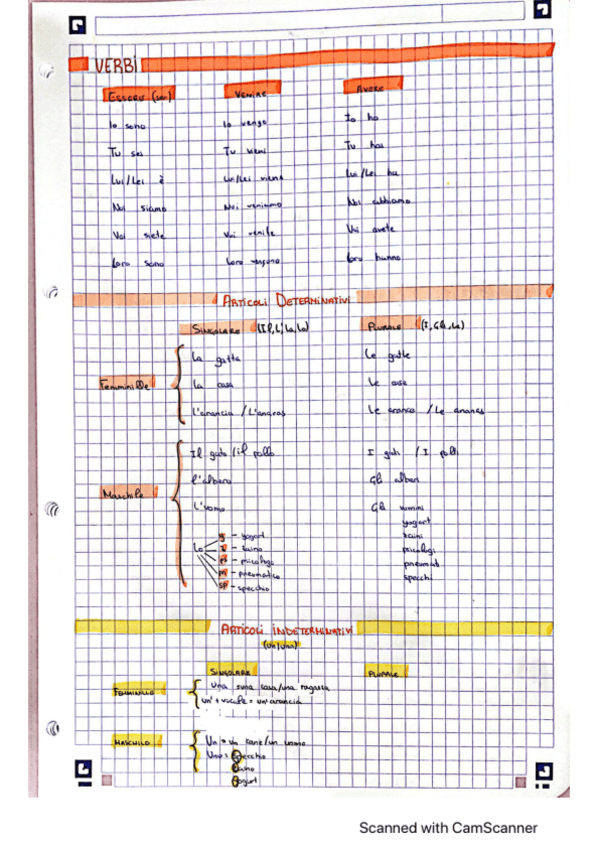 VERBI
ESSERE (ser) VENIRE AVERE
Io sono Io vengo Io ho
Tu sei Tu vieni Tu hai
Lui/Lei è Lui/Lei viene Lui/Lei ha
Noi siamo Noi veniamo Noi abbiamo
Voi siete Voi venite Voi avete
Loro sono Loro vengono Loro hanno
ARTICOLI DETERMINATIVI
SINGOLARE (Il, L', La, Lo) PLURALE (I, Gli, Le)
FEMMINILE
La gatta Le gatte
La casa Le case
L'arancia / L'ananas Le arance / Le ananas
MASCHILE
Il gatto / il pollo I gatti / I polli
L'albero Gli alberi
L'uomo Gli uomini
Lo
y - yogurt yogurt
z - zaino zaini
ps - psicologi psicologi
pn - pneumatico pneumati
sp - specchio specchi
ARTICOLI INDETERMINATIVI
(un/una)
SINGOLARE PLURALE
FEMMINILE
Una = una casa/una ragazza
Un' + vocale = un'arancia
MASCHILE
Un = un cane/un uomo
Uno = specchio
zaino
yogurt
Scanned with CamScanner